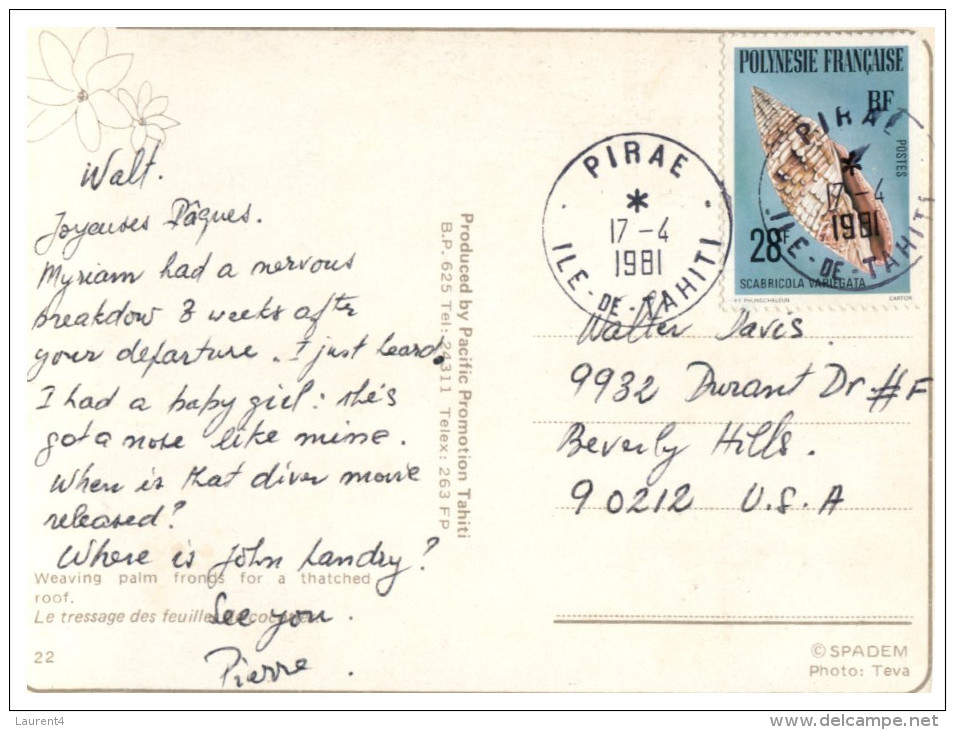 Walt.
Joyeuses Pâques.
Myriam had a nervous
breakdow 3 weeks after
your departure. I just heard
I had a baby girl: she's
got a nose like mine.
When is that diver movie
released?
Where is John Landry?
See you.
Pierre.
Weaving palm fronds for a thatched
roof.
Le tressage des feuilles
22
Produced by Pacific Promotion Tahiti
B.P. 625 Tel: 24311 Telex: 263 FP
PIRAE
*
17-4
1981
ILE-DE-TAHITI
POLYNESIE FRANÇAISE
RF
POSTES
28F
SCABRICOLA VARIEGATA
CARTOR
PIRAE
*
17-4
1981
ILE-DE-TAHITI
Walter Davis.
9932 Durant Dr #F
Beverly Hills.
90212 U.S.A
©SPADEM
Photo: Teva
Laurent4
delcampe.net